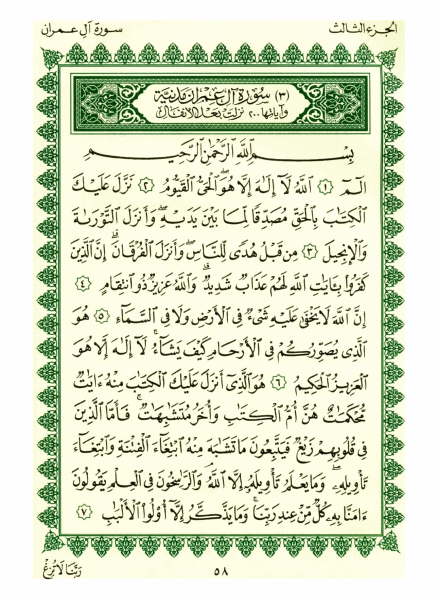 الجزء الثالث
سورة آل عمران
(٣) سورة آل عمران مدنية
وآياتها ٢٠٠ نزلت بعد الأنفال
بِسْمِ ٱللَّهِ ٱلرَّحْمَٰنِ ٱلرَّحِيمِ
الٓمٓ ١ ٱللَّهُ لَآ إِلَٰهَ إِلَّا هُوَ ٱلْحَىُّ ٱلْقَيُّومُ ٢ نَزَّلَ عَلَيْكَ
ٱلْكِتَٰبَ بِٱلْحَقِّ مُصَدِّقًا لِّمَا بَيْنَ يَدَيْهِ وَأَنزَلَ ٱلتَّوْرَىٰةَ
وَٱلْإِنجِيلَ ٣ مِن قَبْلُ هُدًى لِّلنَّاسِ وَأَنزَلَ ٱلْفُرْقَانَ ۗ إِنَّ ٱلَّذِينَ
كَفَرُوا۟ بِـَٔايَٰتِ ٱللَّهِ لَهُمْ عَذَابٌ شَدِيدٌ ۗ وَٱللَّهُ عَزِيزٌ ذُو ٱنتِقَامٍ ٤
إِنَّ ٱللَّهَ لَا يَخْفَىٰ عَلَيْهِ شَىْءٌ فِى ٱلْأَرْضِ وَلَا فِى ٱلسَّمَآءِ ٥ هُوَ
ٱلَّذِى يُصَوِّرُكُمْ فِى ٱلْأَرْحَامِ كَيْفَ يَشَآءُ ۚ لَآ إِلَٰهَ إِلَّا هُوَ
ٱلْعَزِيزُ ٱلْحَكِيمُ ٦ هُوَ ٱلَّذِىٓ أَنزَلَ عَلَيْكَ ٱلْكِتَٰبَ مِنْهُ ءَايَٰتٌ
مُّحْكَمَٰتٌ هُنَّ أُمُّ ٱلْكِتَٰبِ وَأُخَرُ مُتَشَٰبِهَٰتٌ ۖ فَأَمَّا ٱلَّذِينَ
فِى قُلُوبِهِمْ زَيْغٌ فَيَتَّبِعُونَ مَا تَشَٰبَهَ مِنْهُ ٱبْتِغَآءَ ٱلْفِتْنَةِ وَٱبْتِغَآءَ
تَأْوِيلِهِۦ ۗ وَمَا يَعْلَمُ تَأْوِيلَهُۥٓ إِلَّا ٱللَّهُ ۗ وَٱلرَّٰسِخُونَ فِى ٱلْعِلْمِ يَقُولُونَ
ءَامَنَّا بِهِۦ كُلٌّ مِّنْ عِندِ رَبِّنَا ۗ وَمَا يَذَّكَّرُ إِلَّآ أُو۟لُوا۟ ٱلْأَلْبَٰبِ ٧
٥٨
رَبَّنَا لَا تُزِغْ